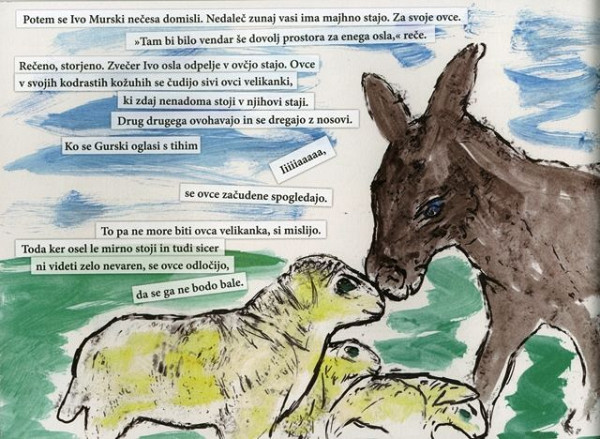 Potem se Ivo Murski nečesa domisli. Nedaleč zunaj vasi ima majhno stajo. Za svoje ovce.
»Tam bi bilo vendar še dovolj prostora za enega osla,« reče.
Rečeno, storjeno. Zvečer Ivo osla odpelje v ovčjo stajo. Ovce
v svojih kodrastih kožuhih se čudijo sivi ovci velikanki,
ki zdaj nenadoma stoji v njihovi staji.
Drug drugega ovohavajo in se dregajo z nosovi.
Ko se Gurski oglasi s tihim
Iiiiiaaaaa,
se ovce začudene spogledajo.
To pa ne more biti ovca velikanka, si mislijo.
Toda ker osel le mirno stoji in tudi sicer
ni videti zelo nevaren, se ovce odločijo,
da se ga ne bodo bale.